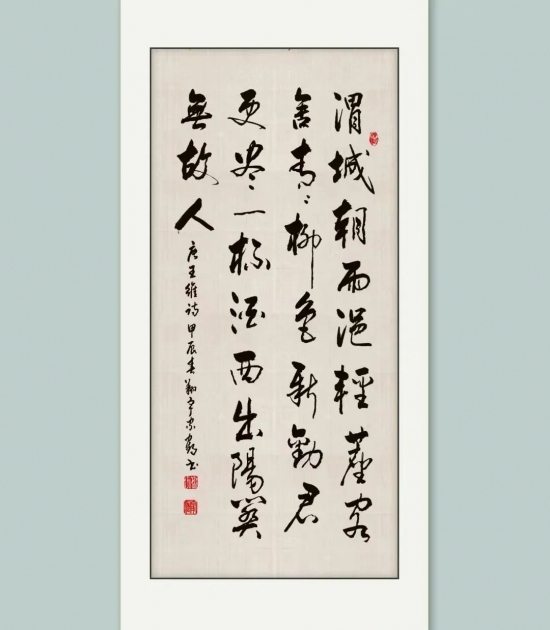 渭城朝雨浥輕塵客
舍青々柳色新勸君
更尽一杯酒西出陽關
無故人
唐王維詩甲辰春翔宇书